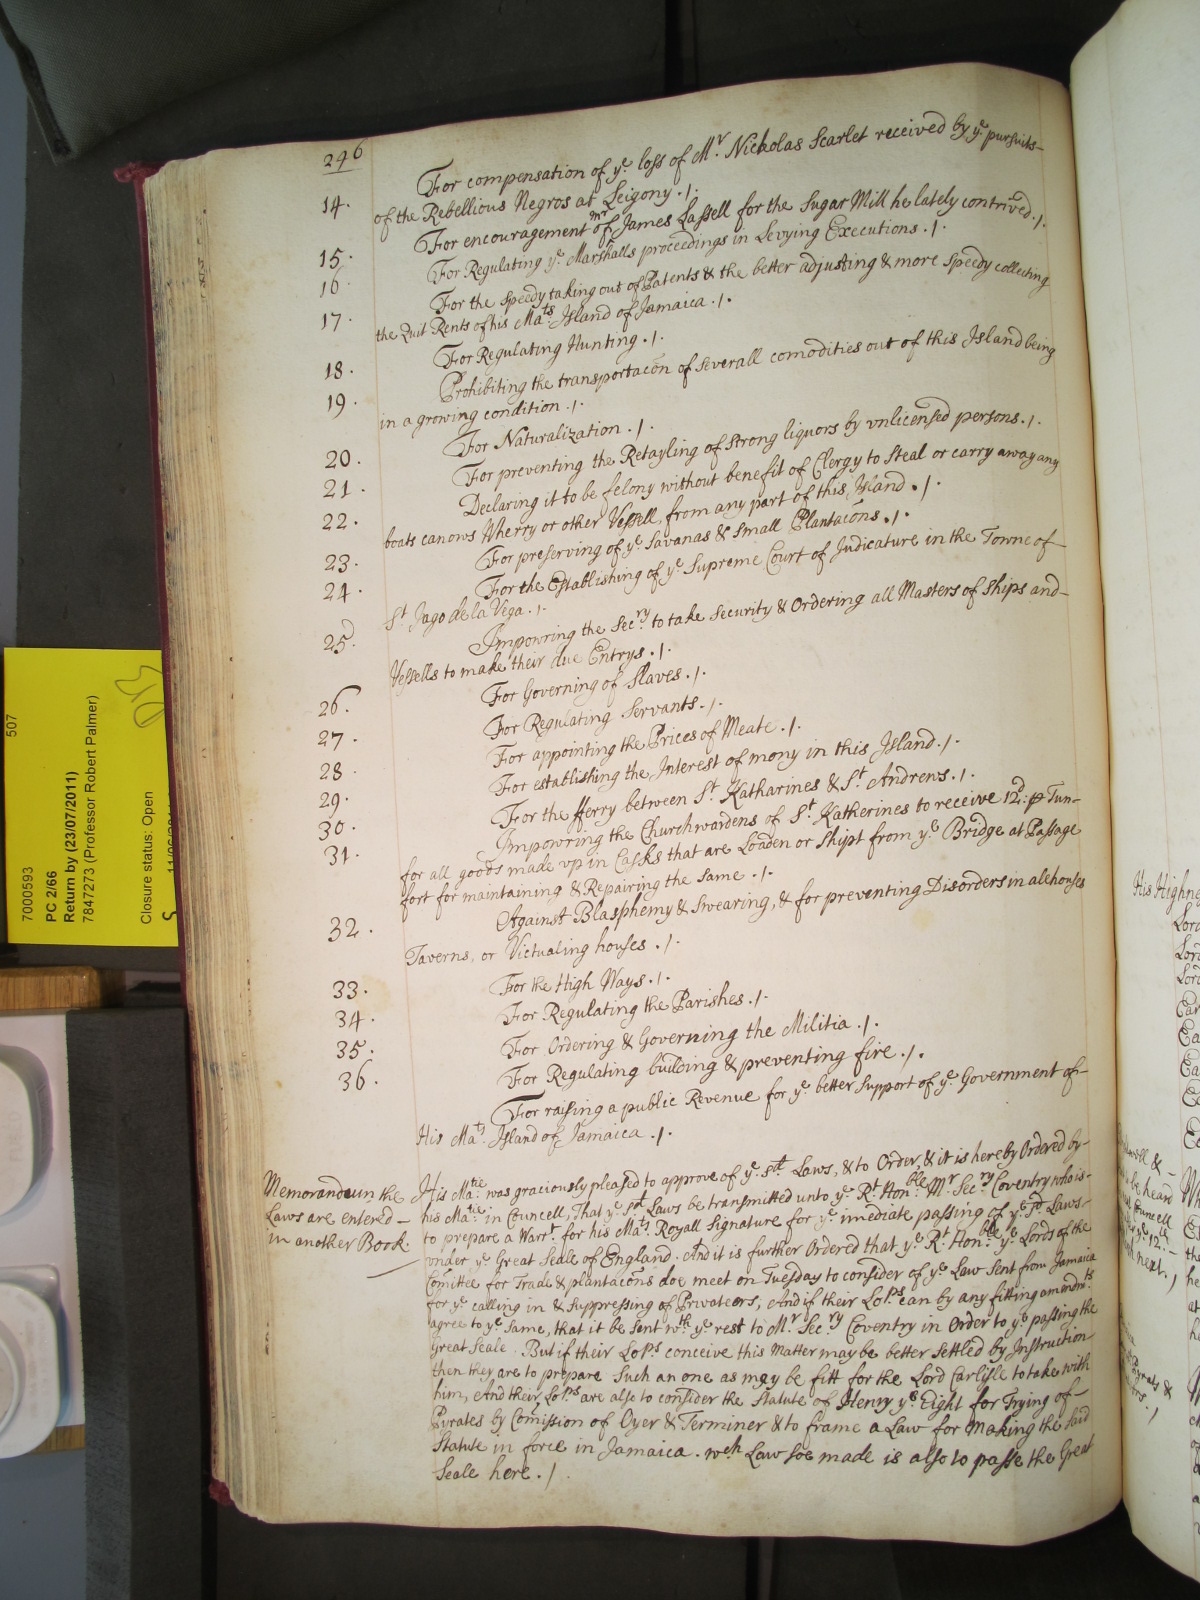 296
14. For compensation of yᵉ loss of Mʳ. Nicholas Scarlet received by yᵉ pursuits
of the Rebellious Negros at Leigony ./.
15. For encouragement of mʳ James Lassell for the Sugar Mill he lately contrived ./.
16 For Regulating yᵉ Marshalls proceedings in Levying Executions ./.
17. For the speedy taking out of Patents & the better adjusting & more speedy collecting
the Quit Rents of his Maᵗˢ. Island of Jamaica ./.
18. For Regulating Hunting ./.
19. Prohibiting the transportacõn of severall comodities out of this Island being
in a growing condition ./.
20. For Naturalization ./.
21. For preventing the Retayling of strong liquors by vnlicensed persons ./.
22. Declaring it to be felony without benefit of Clergy to Steal or carry away any
boats canows Wherry or other Vessell, from any part of this Island ./.
23. For preserving of yᵉ Savanas & small Plantacõns ./.
24. For the Establishing of yᵉ Supreme Court of Judicature in the Towne of
Sᵗ Jago de la Vega ./.
25. Impowring the Secʳʸ to take Security & Ordering all Masters of Ships and
Vessells to make their due Entrys ./.
26. For Governing of Slaves ./.
27. For Regulating Servants ./.
28 For appointing the Prices of Meate ./.
29. For establishing the Interest of mony in this Island ./.
30. For the fferry between Sᵗ Katharines & Sᵗ. Andrews ./.
31. Impowring the Churchwardens of Sᵗ Katherines to receive 12ᵈ: ⅌ Tun
for all goods made vp in Casks that are Loaden or Shipt from yᵉ Bridge at Passage
fort for maintaining & Repairing the same ./.
32. Against Blasphemy & Swearing, & for preventing Disorders in alehouses
Taverns, or Victualing houses ./.
33. For the High Ways ./.
34. For Regulating the Parishes ./.
35. For Ordering & Governing the Militia ./.
36. For Regulating building & preventing fire ./.
For raising a public Revenue for yᵉ better Support of yᵉ Government of
His Maᵗˢ. Island of Jamaica ./.
Memorandum the
Laws are entered
in another Book.
His Maᵗⁱᵉ was graciously pleased to approve of yᵉ sᵈ Laws, & to Order, & it is hereby Ordered by
his Maᵗⁱᵉ in Councell, That yᵉ sᵈ Laws be transmitted unto yᵉ Rᵗ Honᵇˡᵉ Mʳ Secʳʸ Coventry who is
to prepare a Warᵗ. for his Maᵗˢ Royall Signature for yᵉ imediate passing of yᵉ sᵈ Laws
vnder yᵉ Great Seale of England. And it is further Ordered that yᵉ Rᵗ Honᵇˡᵉ yᵉ Lords of the
Comittee for Trade & plantacõns doe meet on Tuesday to consider of yᵉ Law sent from Jamaica
for yᵉ calling in & Suppressing of Privateers, And if their Loᵖˢ can by any fitting amendmᵗˢ
agree to yᵉ same, that it be sent wᵗʰ yᵉ rest to Mʳ Secʳʸ Coventry in Order to yᵉ passing the
Great Seale. But if their Loᵖˢ conceive this Matter may be better settled by Instruction
then they are to prepare Such an one as may be fitt for the Lord Carlisle to take with
him, And their Loᵖˢ are also to consider the Statute of Henry yᵉ Eight for Trying of
Pyrates by Comission of Oyer & Terminer & to frame a Law for making the said
Statute in force in Jamaica. wᶜʰ Law soe made is also to passe the Great
Seale here ./
507
7000593
PC 2/66
Return by (23/07/2011)
7847273 (Professor Robert Palmer)
Closure status: Open
His Highne
Lord
Lord
Lord